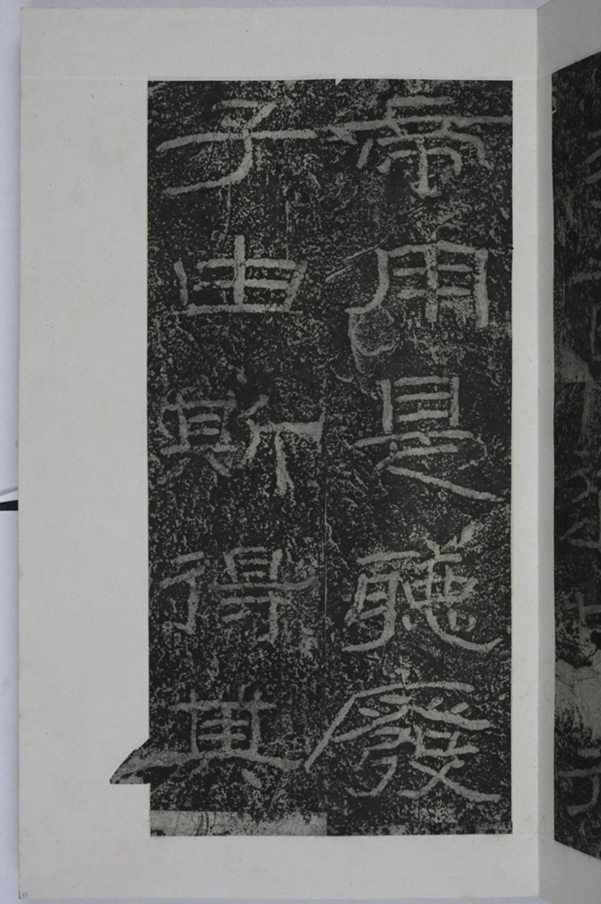 帝用是聽廢
子由斯得其